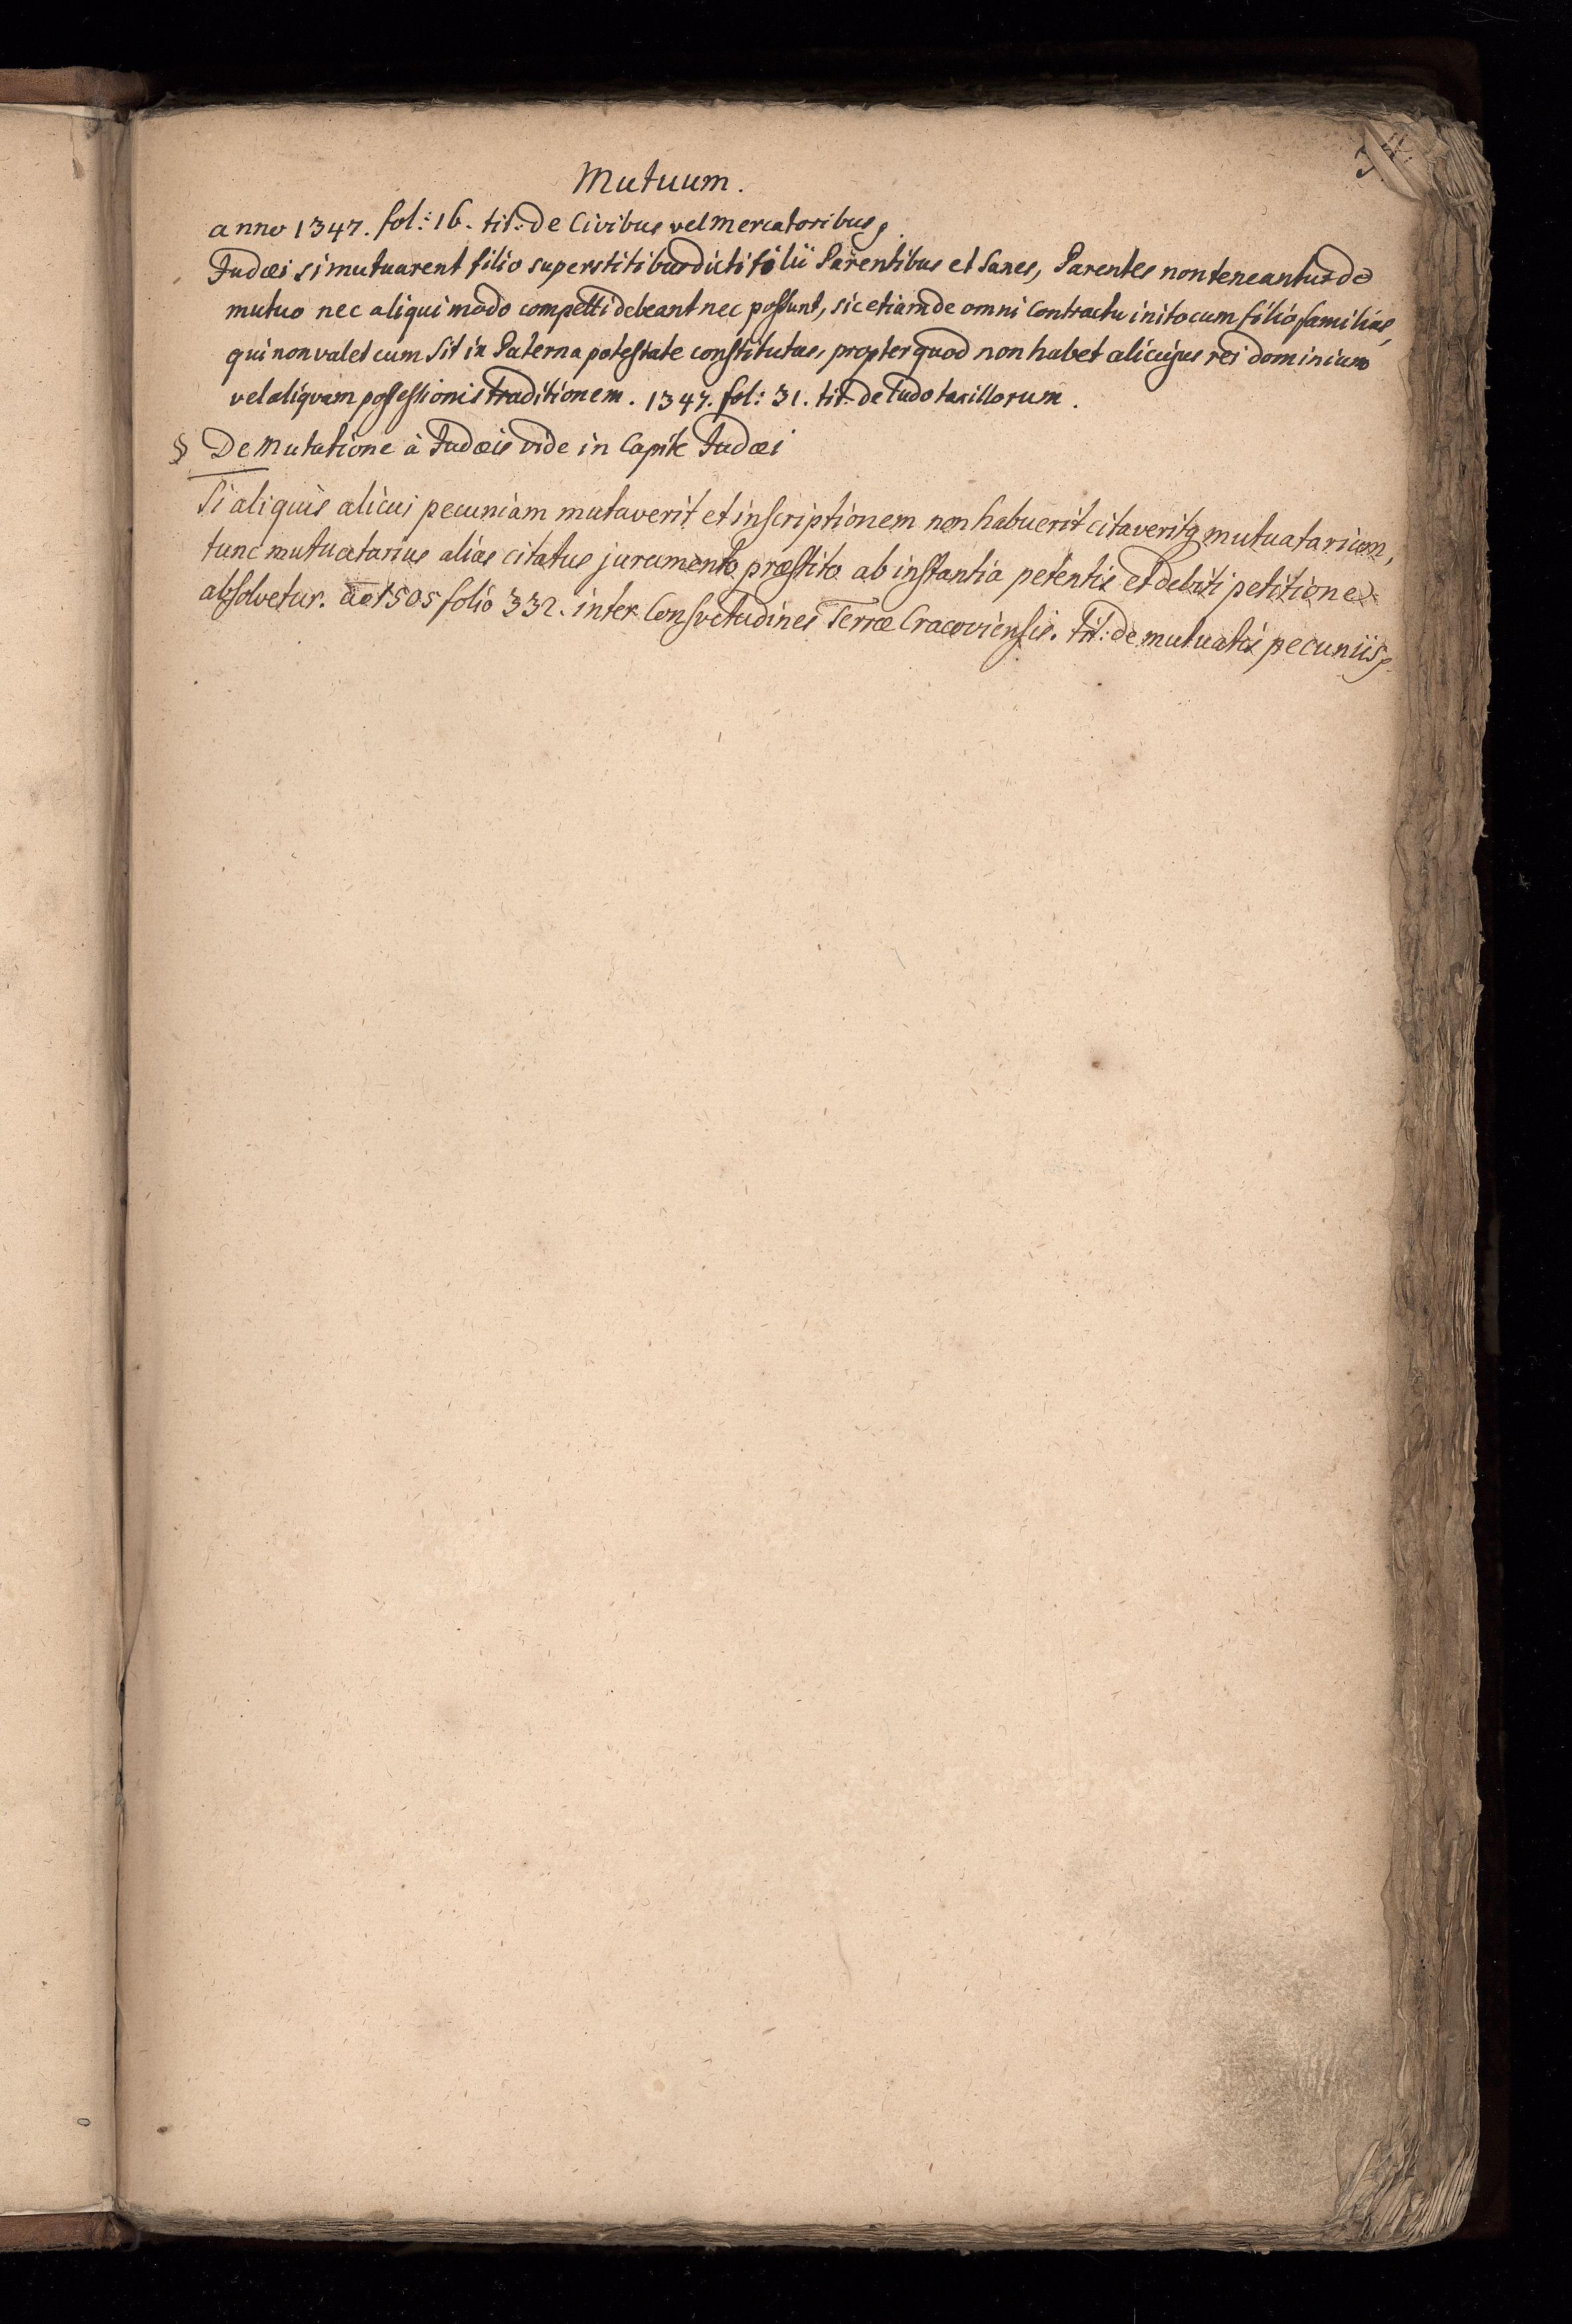 Mutuum.
anno 1347. fol: 16. tit: de Civibus vel Mercatoribus,
Judæi si mutuarent filio superstitibus dicti filii Parentibus et Sanes, Parentes non teneantur de
mutuo nec aliqui modo compelli debeant nec possunt, sic etiam de omni Contractu inito cum filio familias,
qui non valet cum sit in Paterna potestate constitutus, propter quod non habet alicujus rei dominium
vel aliqvam possessionis traditionem. 1347. fol: 31. tit: de Ludo taxillorum.
§ De Mutatione à Judæis vide in Capite Judæi
Si aliquis alicui pecuniam mutaverit et inscriptionem non habuerit citaveritq mutuatarium,
tunc mutuatarius alias citatus juramento præstito ab instantia petentis et debiti petitione
absolvetur. ao 1505 folio 332. inter Consvetudines Terræ Cracoviensis. tit: de mutuatis pecuniis